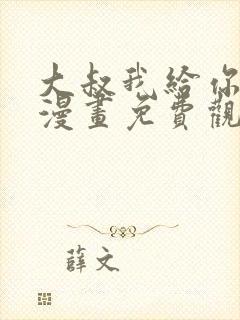 大叔我給你
漫畫免費觀
薛文